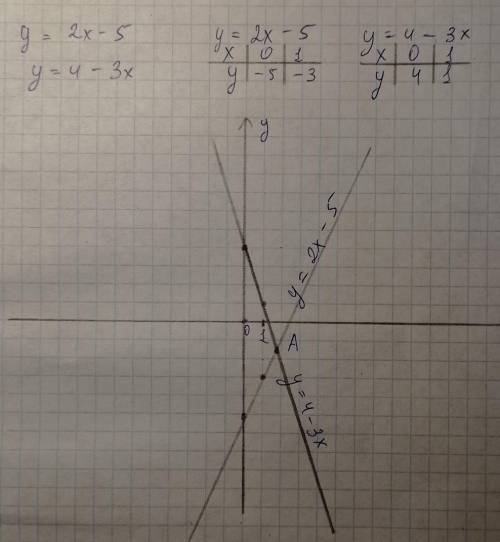 y = 2x - 5
y = 4 - 3x
y = 2x - 5
x 0 1
y -5 -3
y = 4 - 3x
x 0 1
y 4 1
y
y = 2x - 5
0 1
A
y = 4 - 3x